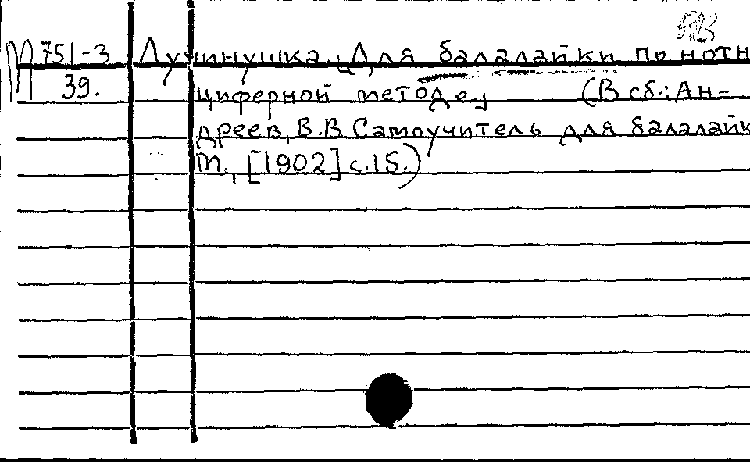 М 751-3 Лучинушка. [Для балалайки по нотн
39. циферной методе.] (В сб.: Ан-
дреев, В.В. Самоучитель для балалайк
М., [1902] с.15.)